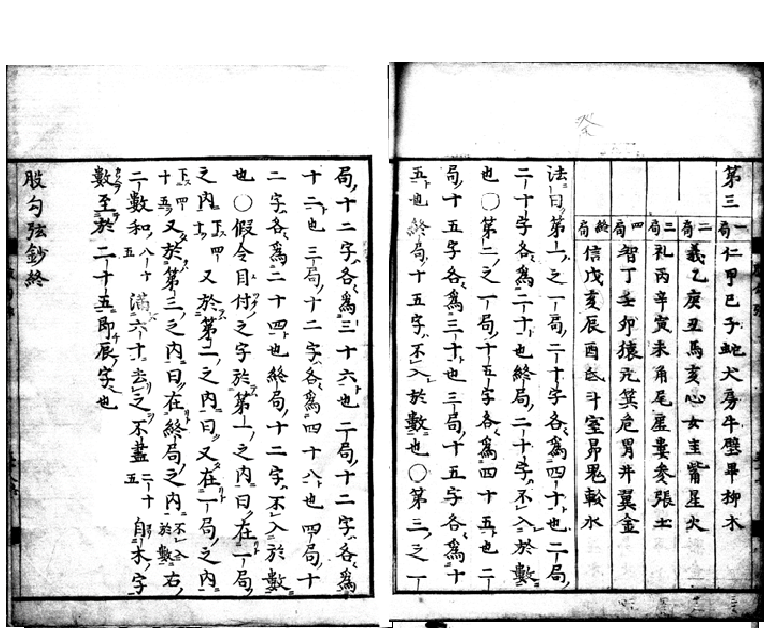 第三
一局 仁甲巳子蛇犬房牛壁畢柳木
二局 義乙庚丑馬亥心女奎觜星火
三局 礼丙辛寅未角尾虚婁参張土
四局 智丁壬卯猿亢箕危胃井翼金
終局 信戊亥辰酉氐斗室昴鬼軫水
法曰第一之一局二十字各為四十也二局
二十字各為二十也終局二十字不入於數
也〇第二之一局十五字各為四十五也二
局十五字各為三十也三局十五字各為十
五也終局十五字不入於數也〇第三之一
局十二字各為三十六也二局十二字各為
十二也三局十二字各為四十八也四局十
二字各為二十四也終局十二字不入於數
也〇假令目付之字於第一之内曰在一局
之内 四十 又於第二之内曰又在一局之内
四十五 又於第三之内曰在終局之内 不入於數 右
二數和 八十五 満六十去之不盡 二十五 自木字
數至於二十五即辰字也
股勾弦鈔終